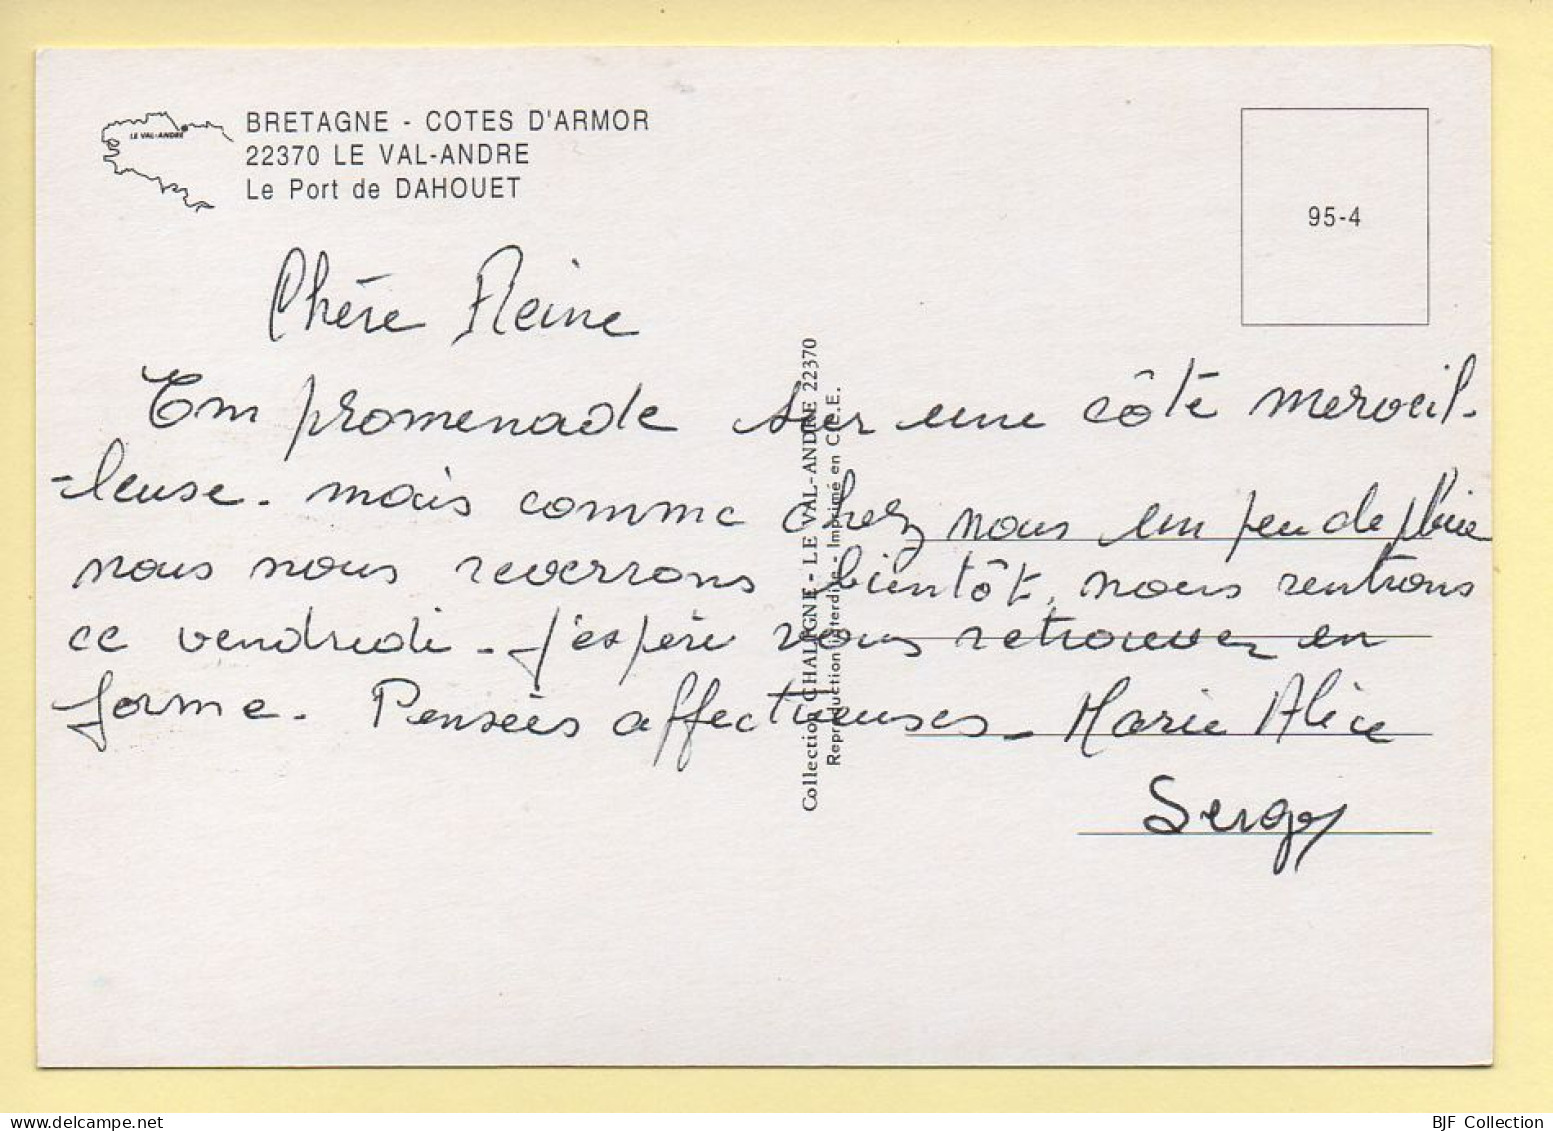 LE VAL-ANDRE
BRETAGNE - COTES D'ARMOR
22370 LE VAL-ANDRE
Le Port de DAHOUET
95-4
Chère Reine
En promenade sur une côte merveil-
-leuse. mais comme chez nous un peu de pluie
nous nous reverrons bientôt, nous rentrons
ce vendredi - J'espère vous retrouver en
forme. Pensées affectueuses - Marie Alice
Serge
Collection CHALIGNE - LE VAL-ANDRE 22370
Reproduction interdite - Imprimé en C.E.E.
BJF Collection